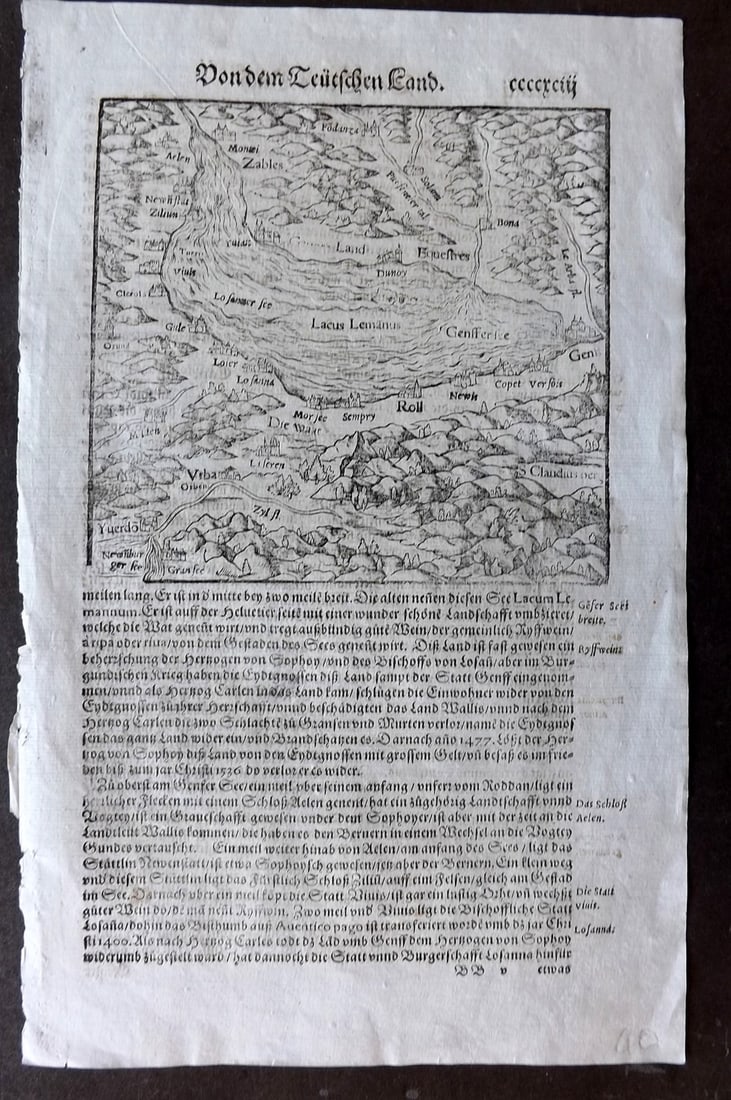 Von dem Teütschen Land. ccccxciij
Aelen
Montei
Zables
Newstat
Zilium
Vivis
Lo sanner see
Land
Equestres
Dunoy
Bona
Lacus Lemanus
Genffer see
Gen
Gůle
Losanna
Morsee
Sempry
Roll
Newis
Copet
Versoi
Die Waat
Milten
Vrba
Orben
Zyl fl.
S Claudius per
Yuerdo
Newenbur
ger see
Gransee
meilen lang. Er ist in d' mitte bey zwo meilē breit. Die alten neñen diesen See Lacum Le
mannum. Er ist auff der Heluetier seitē mit einer wunder schönē Landschafft vmbzieret/
welche die Wat geneñt wirt/vnd tregt außbündig gůtē Wein/der gemeinlich Ryffwein/
à ripa oder riua/von dem Gestaden des Sees geneñt wirt. Diß Land ist fast gewesen ein
beherrschung der Hertzogen von Sophoy/vnd des Bischoffs von Losañ/aber im Bur-
gundischen Krieg haben die Eydtgnossen diß Land sampt der Statt Genff eingenom-
men/vnnd als Hertzog Carlen in das Land kam/schlůgen die Einwohner wider von den
Eydtgnossen zů jhrer Herrschafft/vnnd beschädigten das Land Wallis/vnnd nach dem
Hertzog Carlen die zwo Schlachtē zů Gransen vnd Murten verlor/namē die Eydtgnos
sen das gantz Land wider ein/vnd Brandschatzen es. Darnach año 1477. Lößt der Her-
tzog von Sophoy diß Land von den Eydtgnossen mit grossem Gelt/vñ besaß es im frie-
den biß zum jar Christi 1536 do verlor er es wider.
Zů oberst am Genfer See/ein meil vber seinem anfang/vnfert vom Roddan/ligt ein
herrlicher Flecken mit einem Schloß Aelen genent/hat ein zůgehörig Landtschafft vnnd
Vogtey/ist ein Graueschafft gewesen vnder dem Sophoyer/ist aber mit der zeit an die
Landtleut Wallis kommen/die haben es den Bernern in einem Wechsel an die Vogtey
Gundes vertauscht. Ein meil weiter hinab von Aelen/am anfang des Sees/ligt das
Stättlin Newenstatt/ist etwa Sophoysch gewesen/jetz aber der Bernern. Ein klein weg
vnd diesem Stättlin ligt das Fürstlich Schloß Ziliū/auff ein Felsen/gleich am Gestad
im See. Darnach vber ein meil kōpt die Statt Viuis/ist gar ein lustig Orht/vñ wechßt
gůter Wein do/dē mā neñt Ryffwin. Zwo meil vnd Viuis ligt die Bischoffliche Statt
Losaña/dohin das Bisthumb auß Auentico pago ist transferiert wordē vmb dz jar Chri
sti 1400. Als nach Hertzog Carles todt dz Lād vmb Genff dem Hertzogen von Sophoy
widerumb zůgestelt ward/hat dannocht die Statt vnnd Burgerschafft Losanna hinfür
BB v etwas
Gēfer Sees
breite.
Ryffwein.
Das Schloß
Aelen.
Die Statt
Viuis.
Losanna.